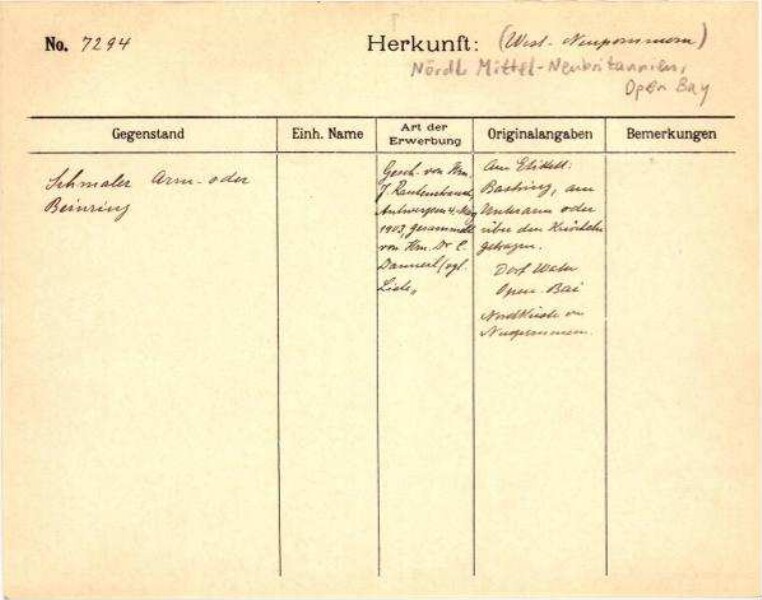 No. 7294
Herkunft: (West-Neupommern)
Nördl. Mittel-Neubritannien,
Open Bay
Gegenstand
Einh. Name
Art der
Erwerbung
Originalangaben
Bemerkungen
Schmaler Arm- oder
Beinring
Gesch. von Hrn.
J. Rautenstrauch,
Antwerpen 4. May
1903, gesammelt
von Hrn. Dr E.
(vgl.
Liste,
Am Etikett:
Bastring, am
Unterarm oder
über den Knöcheln
getragen.
Dorf
Open-Bai
Nordküste von
Neupommern.